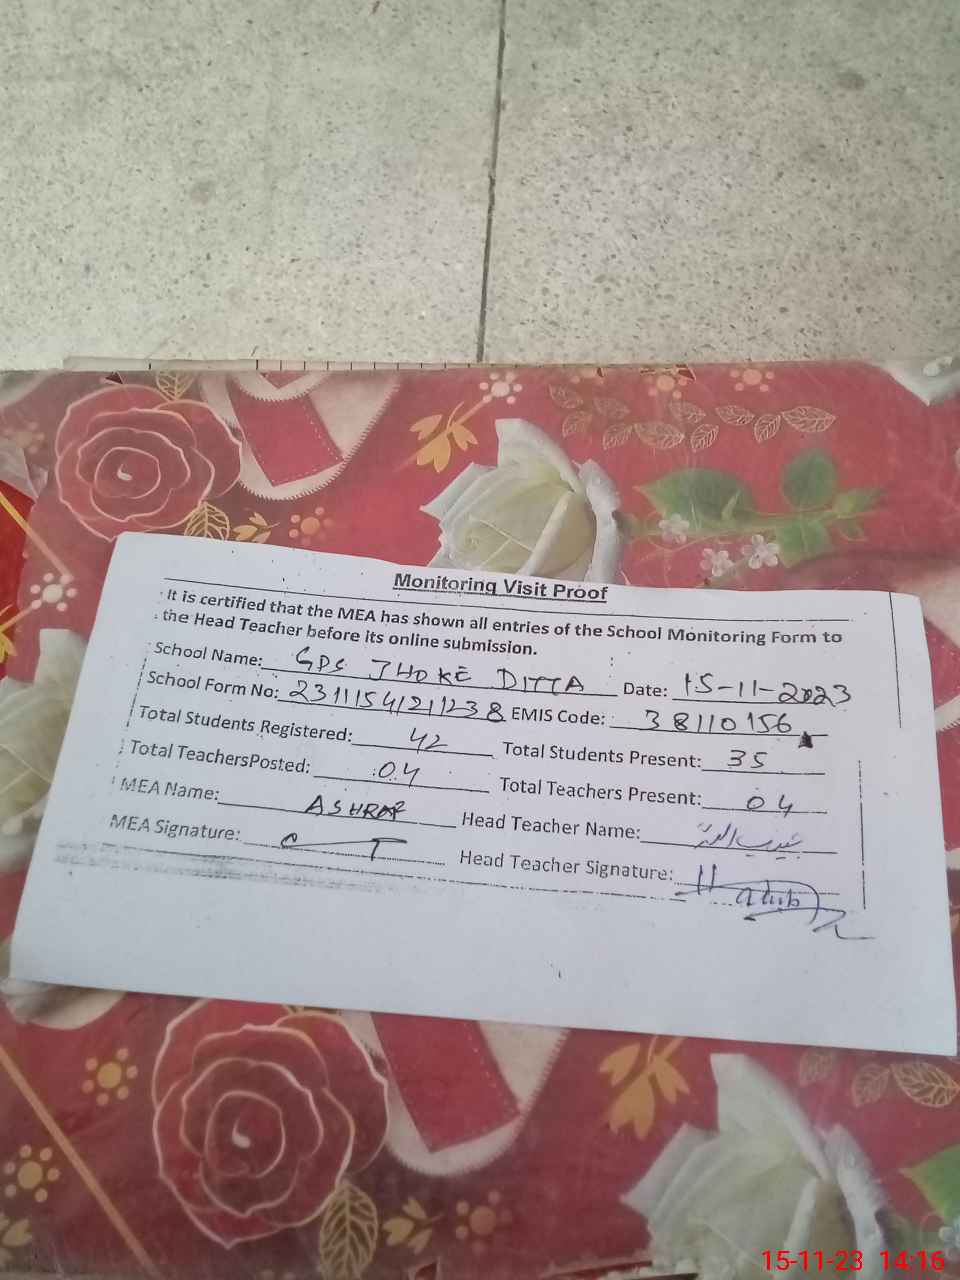 Monitoring Visit Proof
It is certified that the MEA has shown all entries of the School Monitoring Form to
the Head Teacher before its online submission.
School Name: GPS JHOKE DITTA Date: 15-11-2023
School Form No: 231115412111238 EMIS Code: 38110156
Total Students Registered: 42 Total Students Present: 35
Total TeachersPosted: 04 Total Teachers Present: 04
MEA Name: ASHRAF Head Teacher Name:
MEA Signature: Head Teacher Signature:
15-11-23 14:16